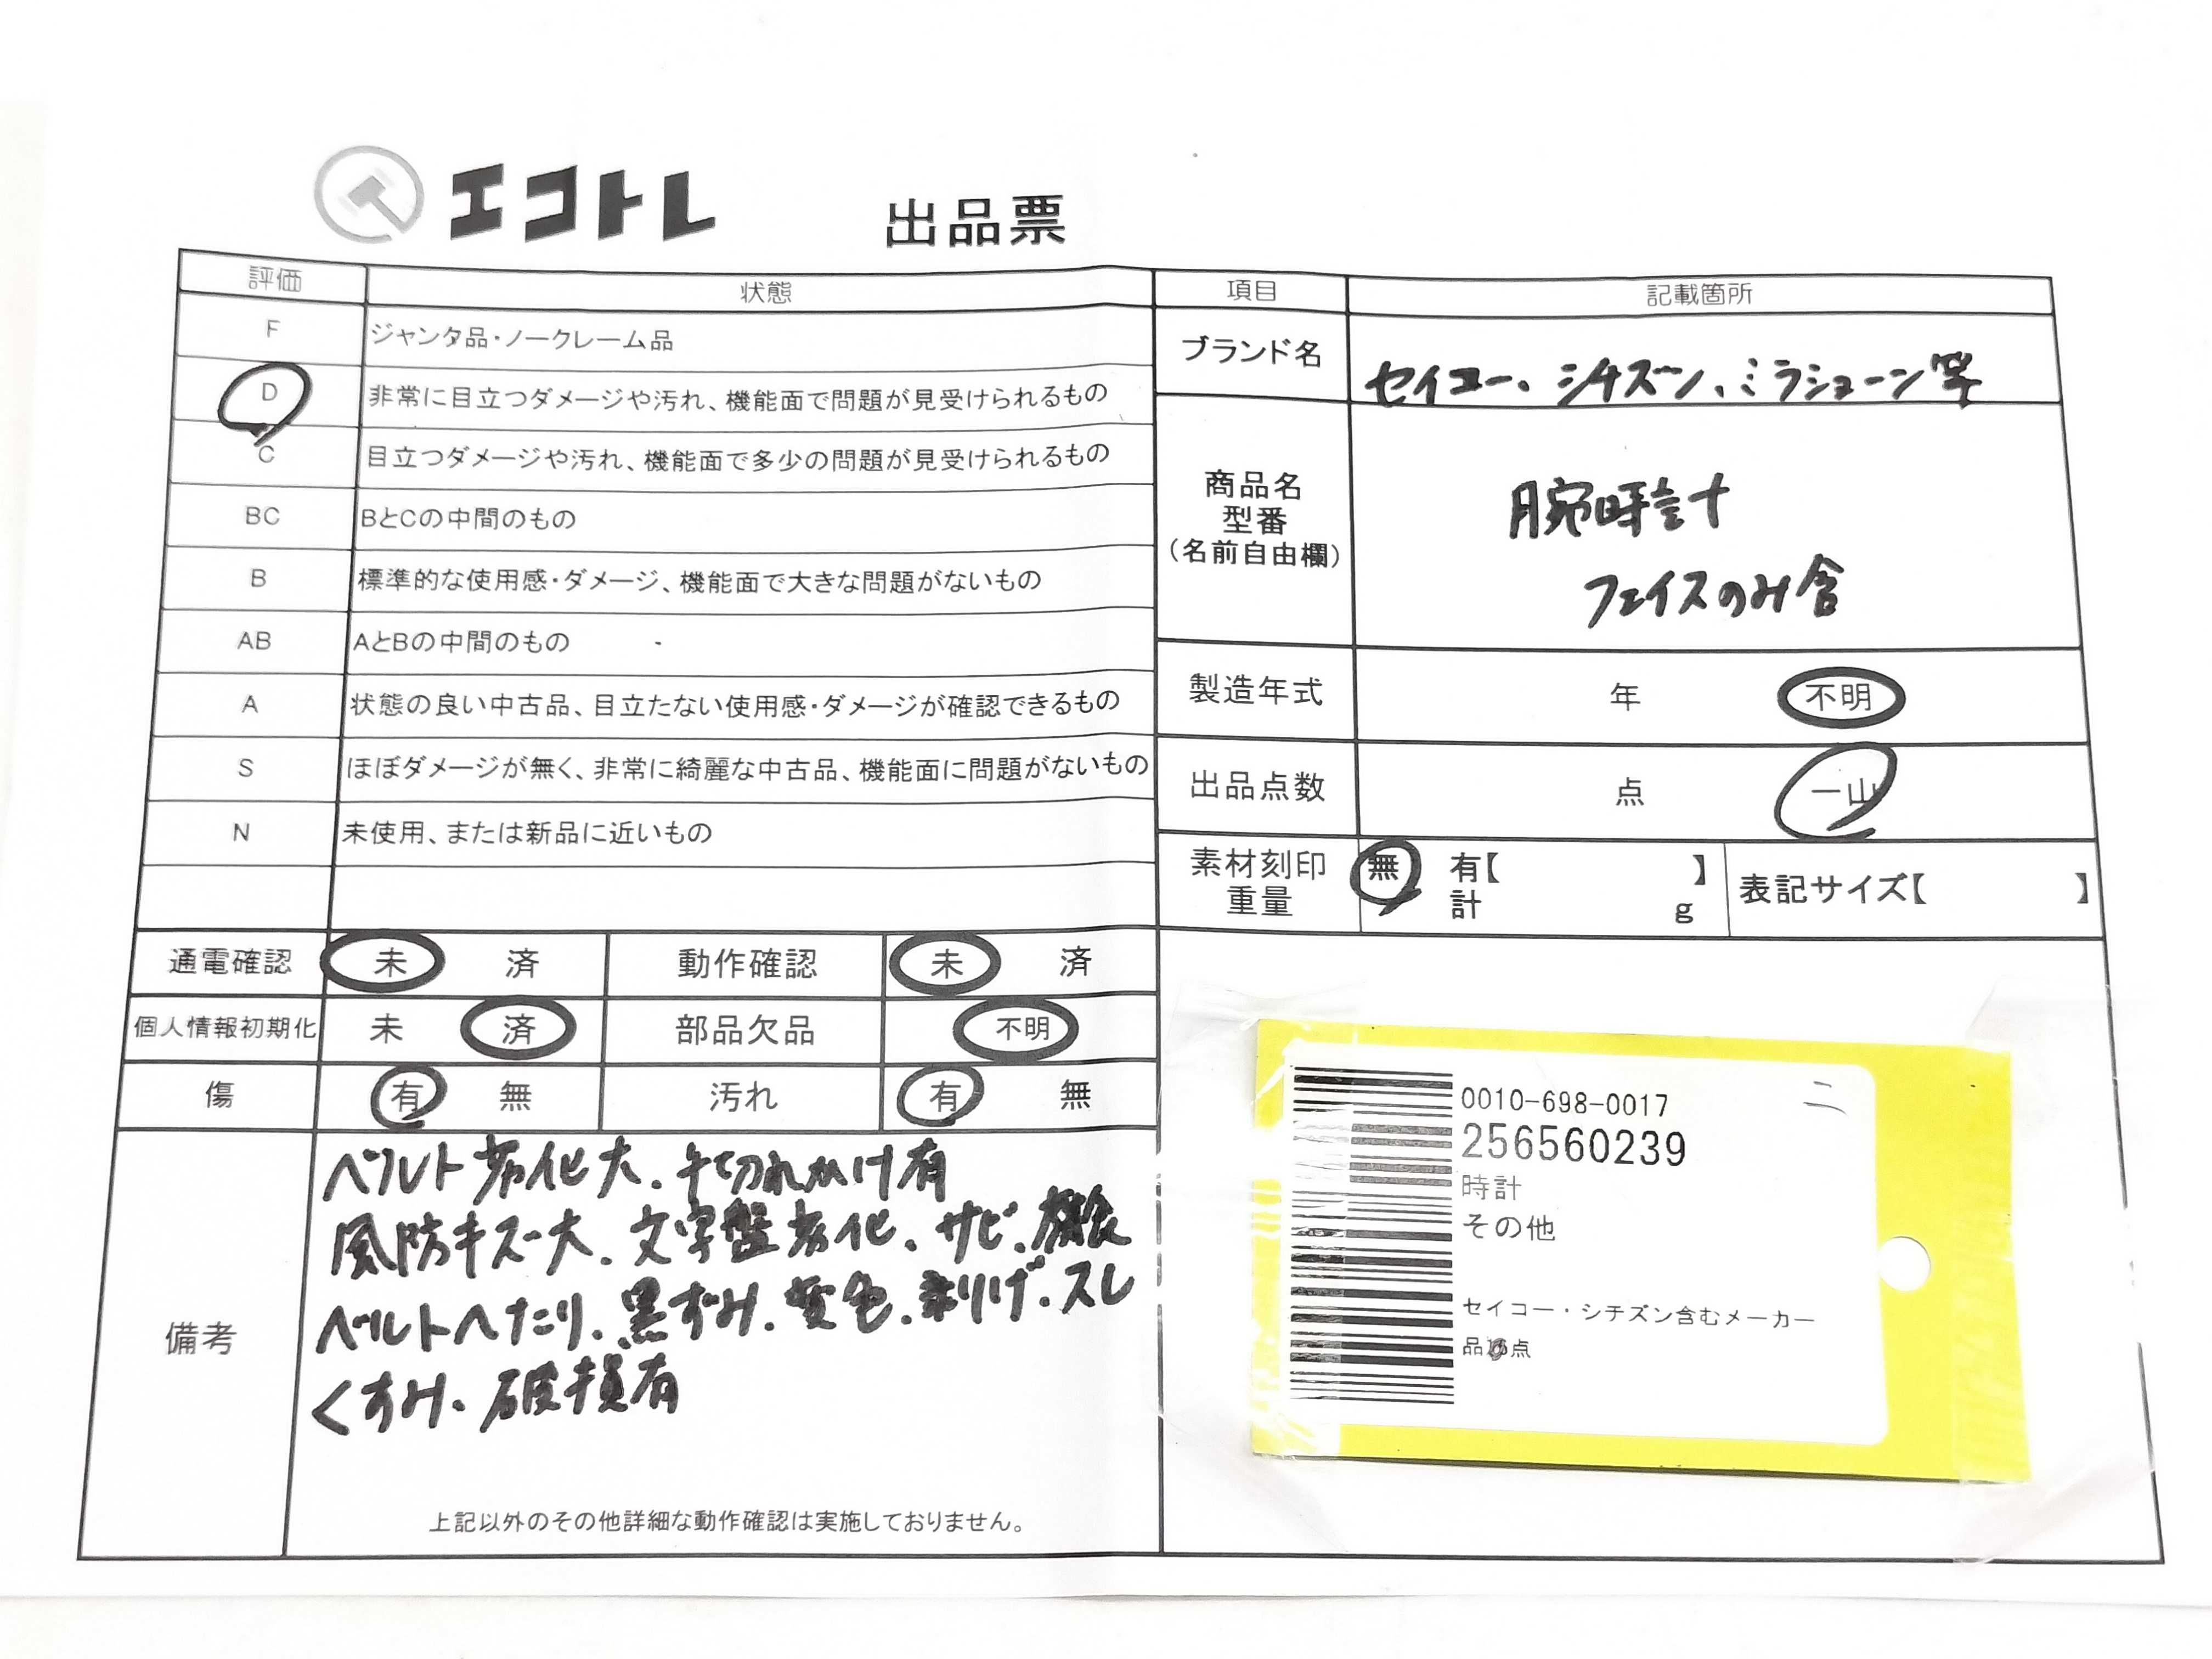 エコトレ
出品票
評価 状態
F ジャンタ品・ノークレーム品
D 非常に目立つダメージや汚れ、機能面で問題が見受けられるもの
C 目立つダメージや汚れ、機能面で多少の問題が見受けられるもの
BC BとCの中間のもの
B 標準的な使用感・ダメージ、機能面で大きな問題がないもの
AB AとBの中間のもの
A 状態の良い中古品、目立たない使用感・ダメージが確認できるもの
S ほぼダメージが無く、非常に綺麗な中古品、機能面に問題がないもの
N 未使用、または新品に近いもの
通電確認 未 済 動作確認 未 済
個人情報初期化 未 済 部品欠品 不明
傷 有 無 汚れ 有 無
備考
ベルト劣化大.千切れかけ有
風防キズ大.文字盤劣化.サビ.腐食
ベルトへたり.黒ずみ.変色.剥げ.スレ
くすみ.破損有
上記以外のその他詳細な動作確認は実施しておりません。
項目 記載箇所
ブランド名 セイコー、シチズン、ミラショーン等
商品名
型番
(名前自由欄)
腕時計
フェイスのみ含
製造年式 年 不明
出品点数 点 一山
素材刻印 無 有【 】
重量 計 g
表記サイズ【 】
0010-698-0017
256560239
時計
その他
セイコー・シチズン含むメーカー
品 点